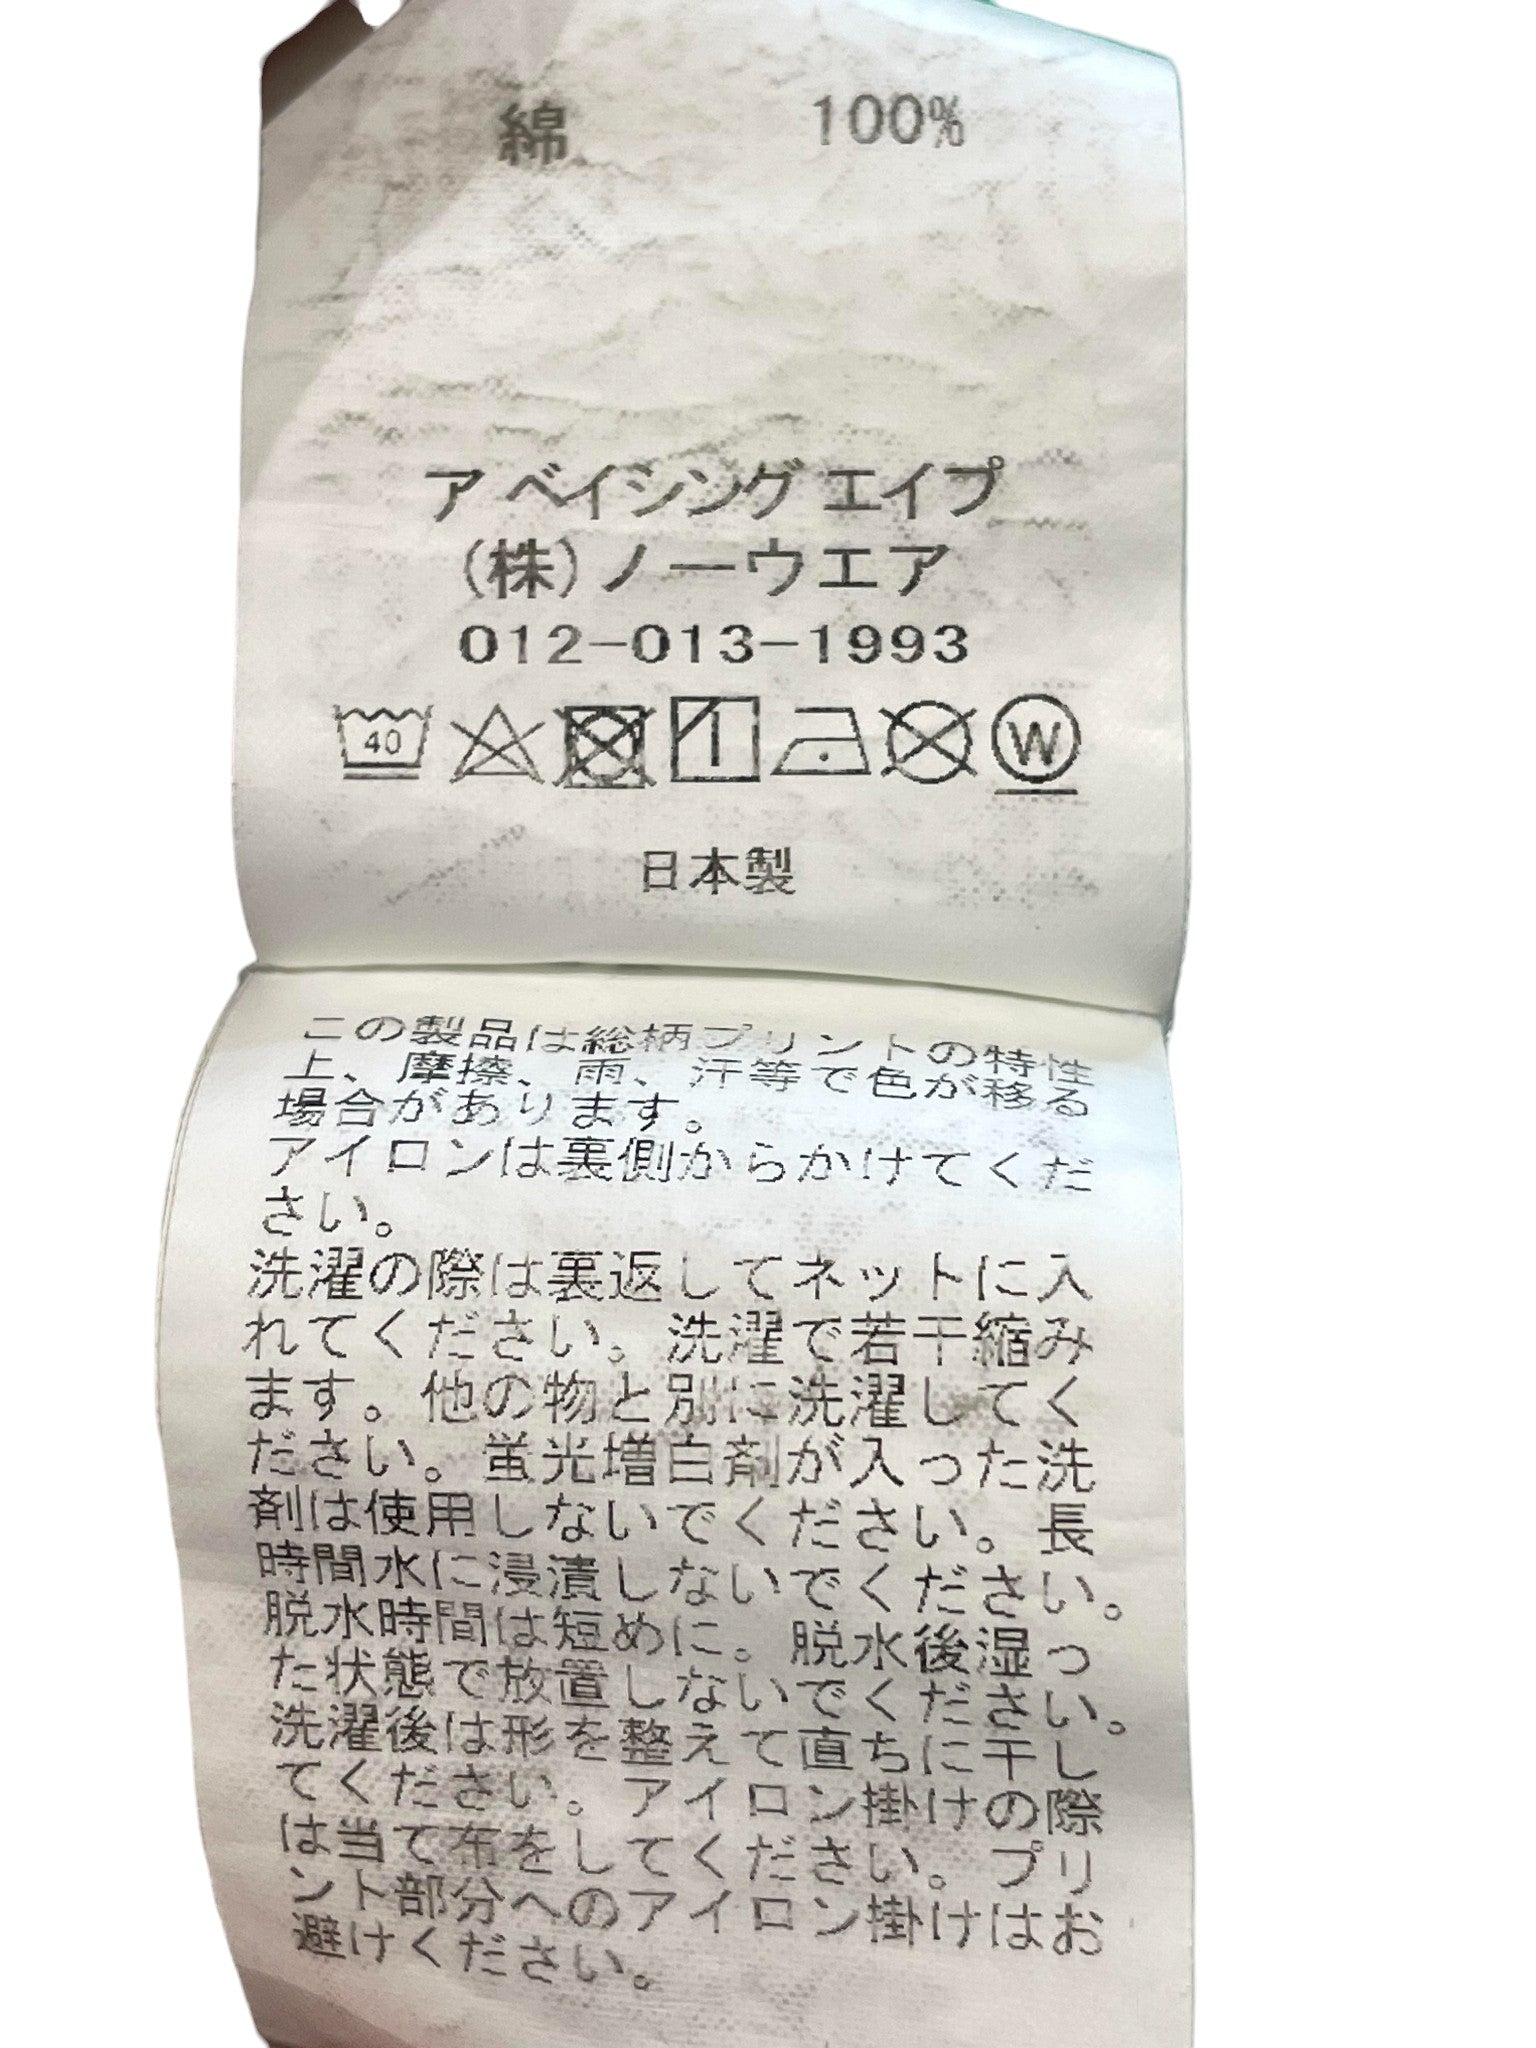 綿 100%
ア ベイシング エイプ
(株)ノーウエア
012-013-1993
40
W
日本製
この製品は総柄プリントの特性
上、摩擦、雨、汗等で色が移る
場合があります。
アイロンは裏側からかけてくだ
さい。
洗濯の際は裏返してネットに入
れてください。洗濯で若干縮み
ます。他の物と別に洗濯してく
ださい。蛍光増白剤が入った洗
剤は使用しないでください。長
時間水に浸漬しないでください。
脱水時間は短めに。脱水後湿っ
た状態で放置しないでください。
洗濯後は形を整えて直ちに干し
てください。アイロン掛けの際
は当て布をしてください。プリ
ント部分へのアイロン掛けはお
避けください。